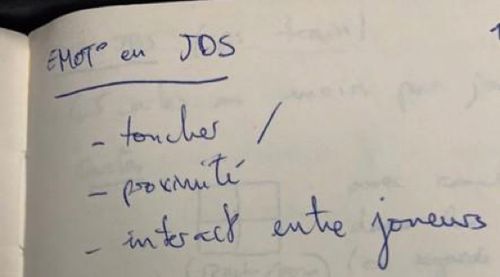 EMOT° en JDS
- toucher /
- proximité
- interact° entre joueurs